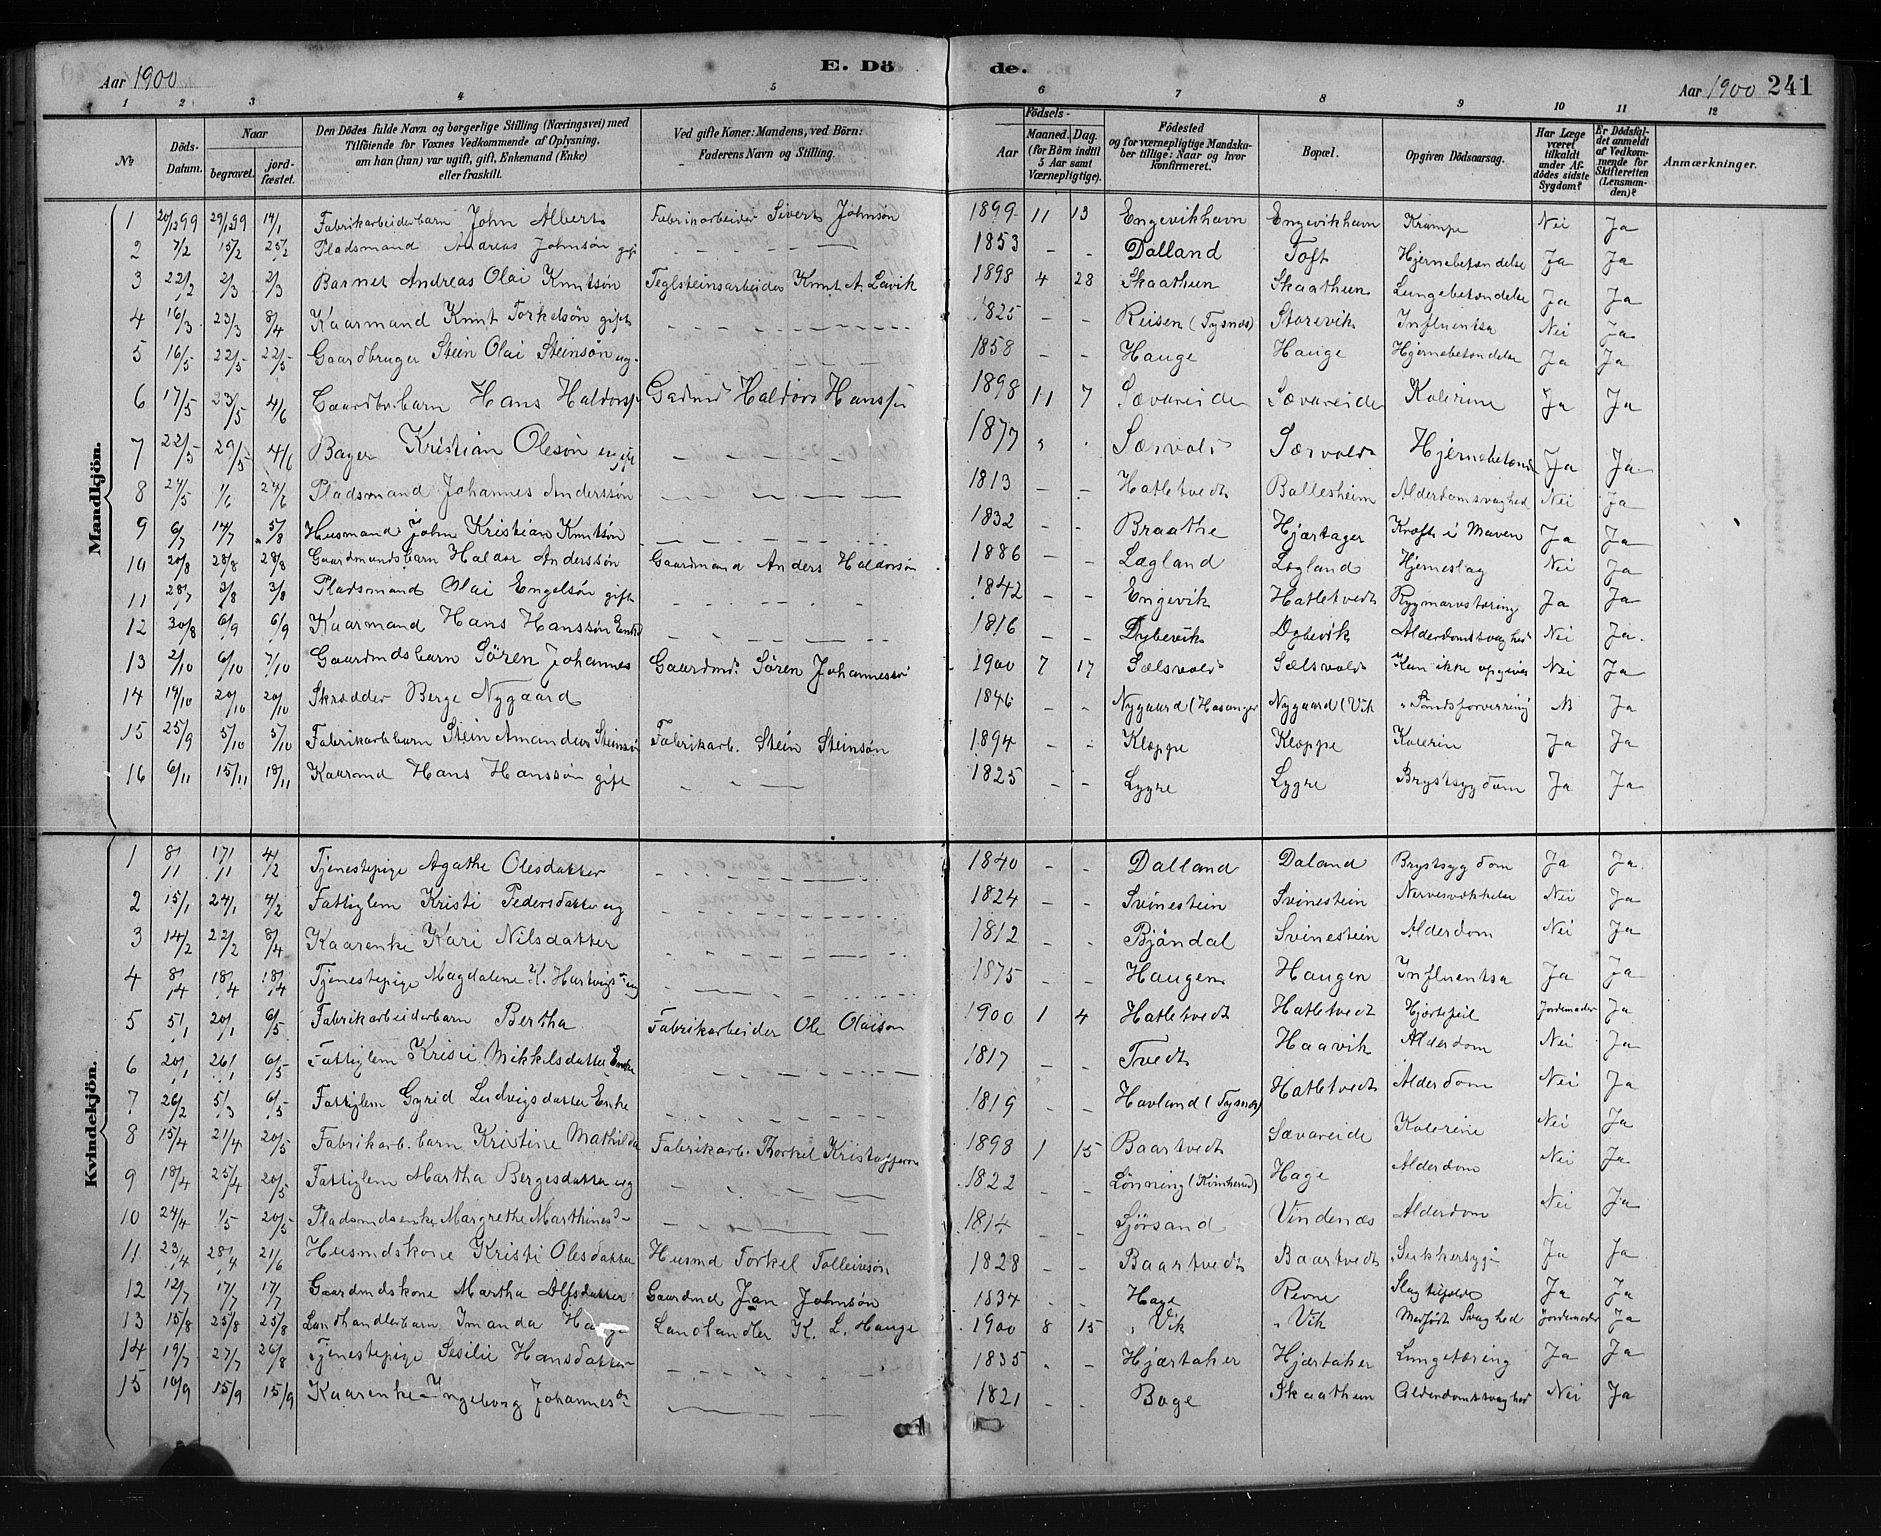 Aar 1900 E. Dö de. Aar 1900 241
1 2 3 4 5 6 7 8 9 10 11 12
№ Döds-Datum. Naar begravet. jord-fæstet. Den Dödes fulde Navn og borgerlige Stilling (Næringsvei) med Tilföiende for Voxnes Vedkommende af Oplysning, om han (hun) var ugift, gift, Enkemand (Enke) eller fraskilt. Ved gifte Koner: Mandens, ved Börn: Faderens Navn og Stilling. Födsels- Aar Maaned. Dag. (for Börn indtil 5 Aar samt Værnepligtige). Födested og for værnepligtige Mandskaber tillige: Naar og hvor konfirmeret. Bopæl. Opgiven Dödsaarsag. Har Læge været tilkaldt under Afdödes sidste Sygdom? Er Dödsfaldet anmeldt af Vedkommende for Skifteretten (Lensmanden)? Anmærkninger.
Mandkjön.
1 20/12 99 29/12 99 14/1 Fabrikarbeiderbarn John Albert Fabrikarbeider Sivert Johnsön 1899 11 13 Engevikhavn Engevikhavn Krampe Nei Ja
2 7/2 15/2 25/2 Pladsmand Andreas Johnsön gift 1853 – – Dalland Toft Hjernebetændelse Ja Ja
3 22/2 2/3 2/3 Barnet Andreas Olai Knutsön Teglsteinsarbeider Knut A. Lavik 1898 4 28 Skaathun Skaathun Lungebetændelse Ja Ja
4 16/3 23/3 8/4 Kaarmand Knut Torkelsön gift 1825 – – Reisen (Tysnæs) Storevik Influentsa Nei Ja
5 16/5 22/5 22/5 Gaardbruger Stein Olai Steinsön ug. 1858 – – Hauge Hauge Hjernebetændelse Ja Ja
6 17/5 23/5 4/6 Gaardbr.barn Hans Haldors Haldors Hans 1898 11 7 Sævareide Sævareide Kolerine Ja Ja
7 22/5 29/5 4/6 Kristian Olesön 1877 Særvold Særvold Hjernebetænd Ja Ja
8 24/5 1/6 24/6 Pladsmand Johannes Anderssön 1813 – – Hatletvedt Ballesheim Alderdomsvaghed Nei Ja
9 6/7 14/7 5/8 Husmand John Kristian Knutsön 1832 – – Braathe Hjærtager Kræft i Maven Ja Ja
10 20/8 28/8 28/8 Gaardmandsbarn Haldor Anderssön Gaardmand Anders Haldorsön 1886 – – Lægland Lægland Hjerneslag Nei Ja
11 28/7 3/8 3/8 Pladsmand Olai Engelsön gift 1842 – – Engevik Hatletvedt Rygmarvstæring Ja Ja
12 30/8 6/9 6/9 Kaarmand Hans Hanssön Enkd 1816 – – Dybevik Dybevik Alderdomsvaghed Nei Ja
13 2/10 6/10 7/10 Gaardmdsbarn Sören Johannes Gaardmd. Sören Johannessö 1900 7 17 Sælsvold Sælsvold Kan ikke opgives Nei Ja
14 14/10 20/10 20/10 Skrædder Berge Nygaard 1846 – – Nygaard (Hasanger Nygaard (Vik Sindsforvirring Ja
15 25/9 5/10 5/10 Fabrikarb.barn Stein Amandus Steinsön Fabrikarb. Stein Steinsön 1894 – – Kloppe Kloppe Kolerin Ja Ja
16 6/11 15/11 18/11 Kaarmd Hans Hanssön gift 1825 – – Lygre Lygre Brystsygdom Ja Ja
Kvindekjön.
1 8/11 17/11 4/2 Tjenestepige Agathe Olesdatter 1840 – – Dalland Daland Brystsygdom Ja Ja
2 15/1 24/1 4/2 Fattiglem Kristi Pedersdatter ug 1824 – – Svinestein Svinestein Nervesvækkelse Nei Ja
3 14/2 22/2 8/4 Kaarenke Kari Nilsdatter 1812 – – Bjöndal Svinestein Alderdom Nei Ja
4 8/4 18/4 18/4 Tjenestepige Magdalene K. Hartvigsd ug 1875 – – Haugen Haugen Influentsa Ja Ja
5 5/1 20/1 6/5 Fabrikarbeiderbarn Bertha Fabrikarbeider Ole Olaison 1900 1 4 Hatletvedt Hatletvedt Hjertefeil Jordemoder Ja
6 20/1 26/1 6/5 Fattiglem Kristi Mikkilsdatter Enke 1817 Tvedt Haavik Alderdom Nei Ja
7 26/2 5/3 6/5 Fattiglem Gyrid Ludvigsdatter Enke 1819 – – Havland (Tysnæs) Hatletvedt Alderdom Nei Ja
8 15/4 21/4 20/5 Fabrikarb.barn Kristine Mathilda Fabrikarb. Torkel Kristoffersen 1898 1 15 Baartvedt Sævareide Kolerine Nei Ja
9 18/4 25/4 20/5 Fattiglem Martha Bergesdatter ug 1822 – – Lönning (Kvinherred) Hage Alderdom Nei Ja
10 24/4 1/5 20/5 Pladsmdsenke Margrethe Marthinesd 1814 – – Sjörsand Vindenæs Alderdom Nei Ja
11 23/4 28/4 21/6 Husmdskone Kristi Olesdatter Husmd Torkel Tolleivsön 1828 – – Baartvedt Baartvedt Sukkersyge Ja Ja
12 12/7 17/7 17/7 Gaardmdskone Martha Alfsdatter Gaardmd Jan Johnsön 1834 – – Hage Revne Slagtilfælde Ja Ja
13 15/8 25/8 25/8 Landhandlerbarn Imanda Hauge Landhandler K. L. Hauge 1900 8 15 Vik Vik Medfödt Svaghed Jordemoder Ja
14 19/7 27/7 26/8 Tjenestepige Sesilie Hansdatter 1835 – – Hjærtaker Hjærtaker Lungetæring Ja Ja
15 10/9 15/9 15/9 Kaarenke Ingeborg Johannesd 1821 – – Boge Skaathun Alderdomsvaghed Nei Ja